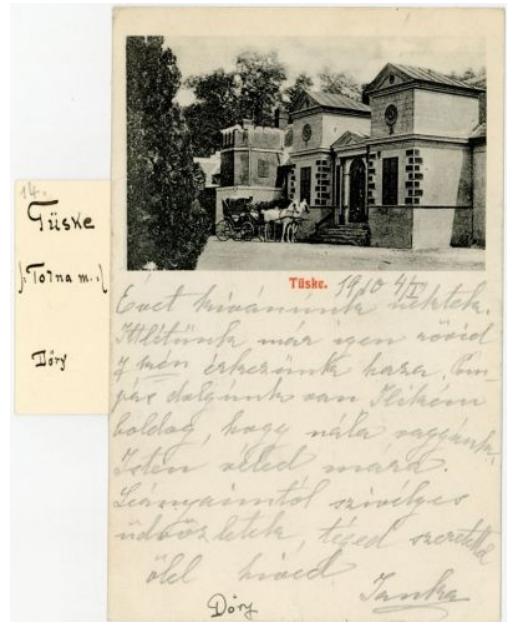 14.
Tüske
(Tolna m.)
Dőry
Tüske. 1910 4/I
Évet kivánunk nektek.
Ittlétünk már igen rövid
7 kén érkezünk haza.
dolgunk van Ilikém
boldog, hogy nála vagyunk.
Isten veled mára.
Leányaimtól szivélyes
üdvözletek, téged szeretettel
ölel hived
Janka
Dőry